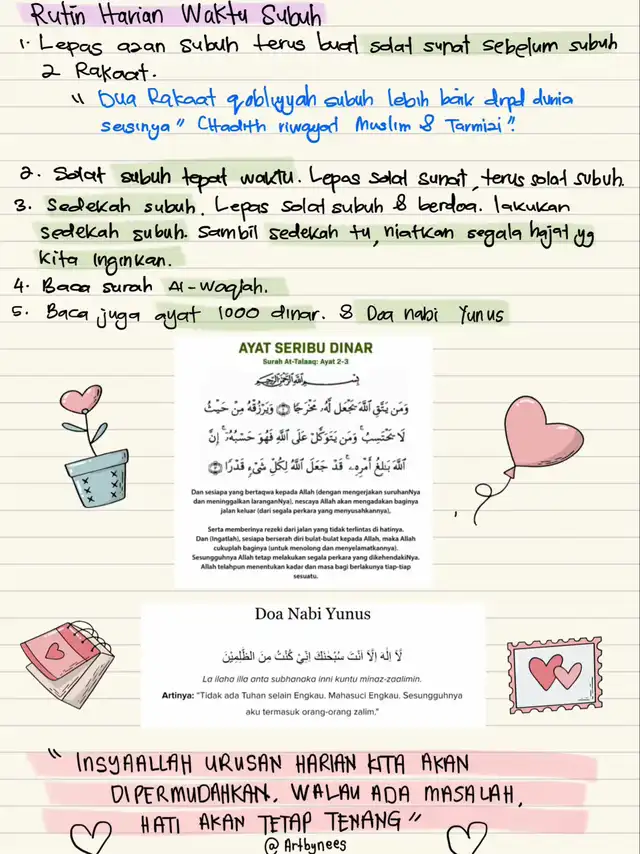 Rutin Harian Waktu Subuh
1. Lepas azan subuh terus buat solat sunat sebelum subuh
2 Rakaat.
" Dua Rakaat qobliyyah subuh lebih baik drpd dunia
seisinya" (Hadith riwayat Muslim & Tarmizi".
2. Solat subuh tepat waktu. Lepas solat sunat, terus solat subuh.
3. Sedekah subuh. Lepas solat subuh & berdoa. lakukan
sedekah subuh. Sambil sedekah tu, niatkan segala hajat yg
kita inginkan.
4. Baca surah Al-Waqiah.
5. Baca juga ayat 1000 dinar. & Doa nabi Yunus
AYAT SERIBU DINAR
Surah At-Talaaq: Ayat 2-3
بِسْمِ اللَّهِ الرَّحْمَٰنِ الرَّحِيمِ
وَمَن يَتَّقِ ٱللَّهَ يَجْعَل لَّهُۥ مَخْرَجًا ﴿٢﴾ وَيَرْزُقْهُ مِنْ حَيْثُ
لَا يَحْتَسِبُ ۚ وَمَن يَتَوَكَّلْ عَلَى ٱللَّهِ فَهُوَ حَسْبُهُۥٓ ۚ إِنَّ
ٱللَّهَ بَـٰلِغُ أَمْرِهِۦ ۚ قَدْ جَعَلَ ٱللَّهُ لِكُلِّ شَىْءٍ قَدْرًا ﴿٣﴾
Dan sesiapa yang bertaqwa kepada Allah (dengan mengerjakan suruhanNya
dan meninggalkan laranganNya), nescaya Allah akan mengadakan baginya
jalan keluar (dari segala perkara yang menyusahkannya),
Serta memberinya rezeki dari jalan yang tidak terlintas di hatinya.
Dan (Ingatlah), sesiapa berserah diri bulat-bulat kepada Allah, maka Allah
cukuplah baginya (untuk menolong dan menyelamatkannya).
Sesungguhnya Allah tetap melakukan segala perkara yang dikehendakiNya.
Allah telahpun menentukan kadar dan masa bagi berlakunya tiap-tiap
sesuatu.
Doa Nabi Yunus
لَآ اِلٰهَ اِلَّآ اَنْتَ سُبْحٰنَكَ اِنِّيْ كُنْتُ مِنَ الظّٰلِمِيْنَ
La ilaha illa anta subhanaka inni kuntu minaz-zaalimin.
Artinya: "Tidak ada Tuhan selain Engkau. Mahasuci Engkau. Sesungguhnya
aku termasuk orang-orang zalim."
" INSYAALLAH URUSAN HARIAN KITA AKAN
DIPERMUDAHKAN. WALAU ADA MASALAH,
HATI AKAN TETAP TENANG "
@ Artbynees